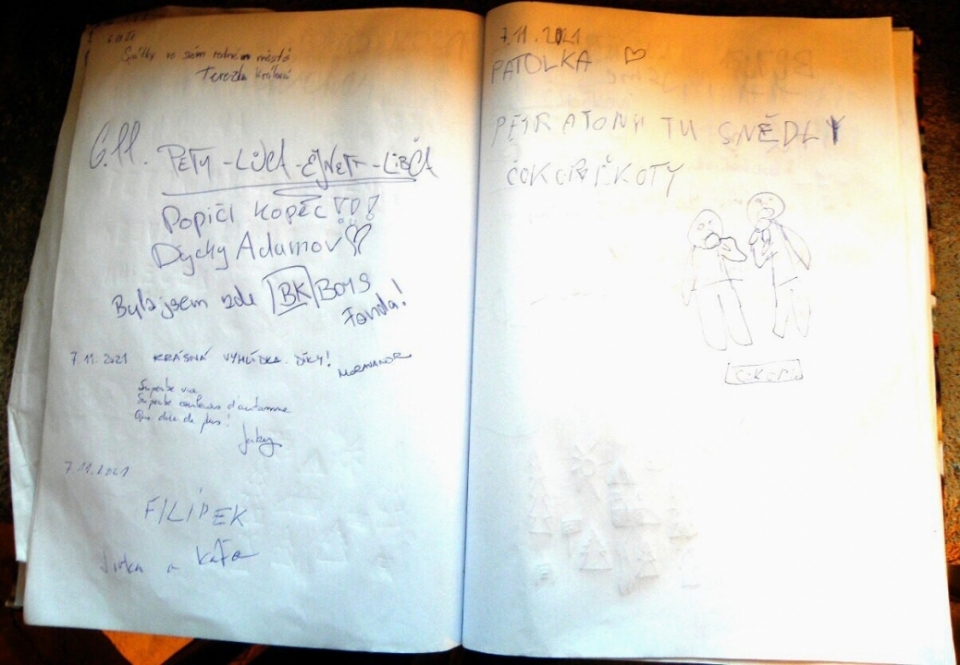 ve svém rodném městě
Terezka
6.11. PETY - LUCA - EJNETA - LIBČA
Popiči kopec!!!
Dycky Adamov
Byla jsem zde BK BOYS
Fanda!
7.11.2021 KRÁSNÁ VYHLÍDKA. DÍKY!
Superbe vue
Superbe couleurs d'automne
Que dire de plus!
7.11.2021
FILÍPEK
Jirka a Kača
7.11.2021
PATOLKA
PETR A TONY TU SNĚDLY
ČOKOPIŠKOTY